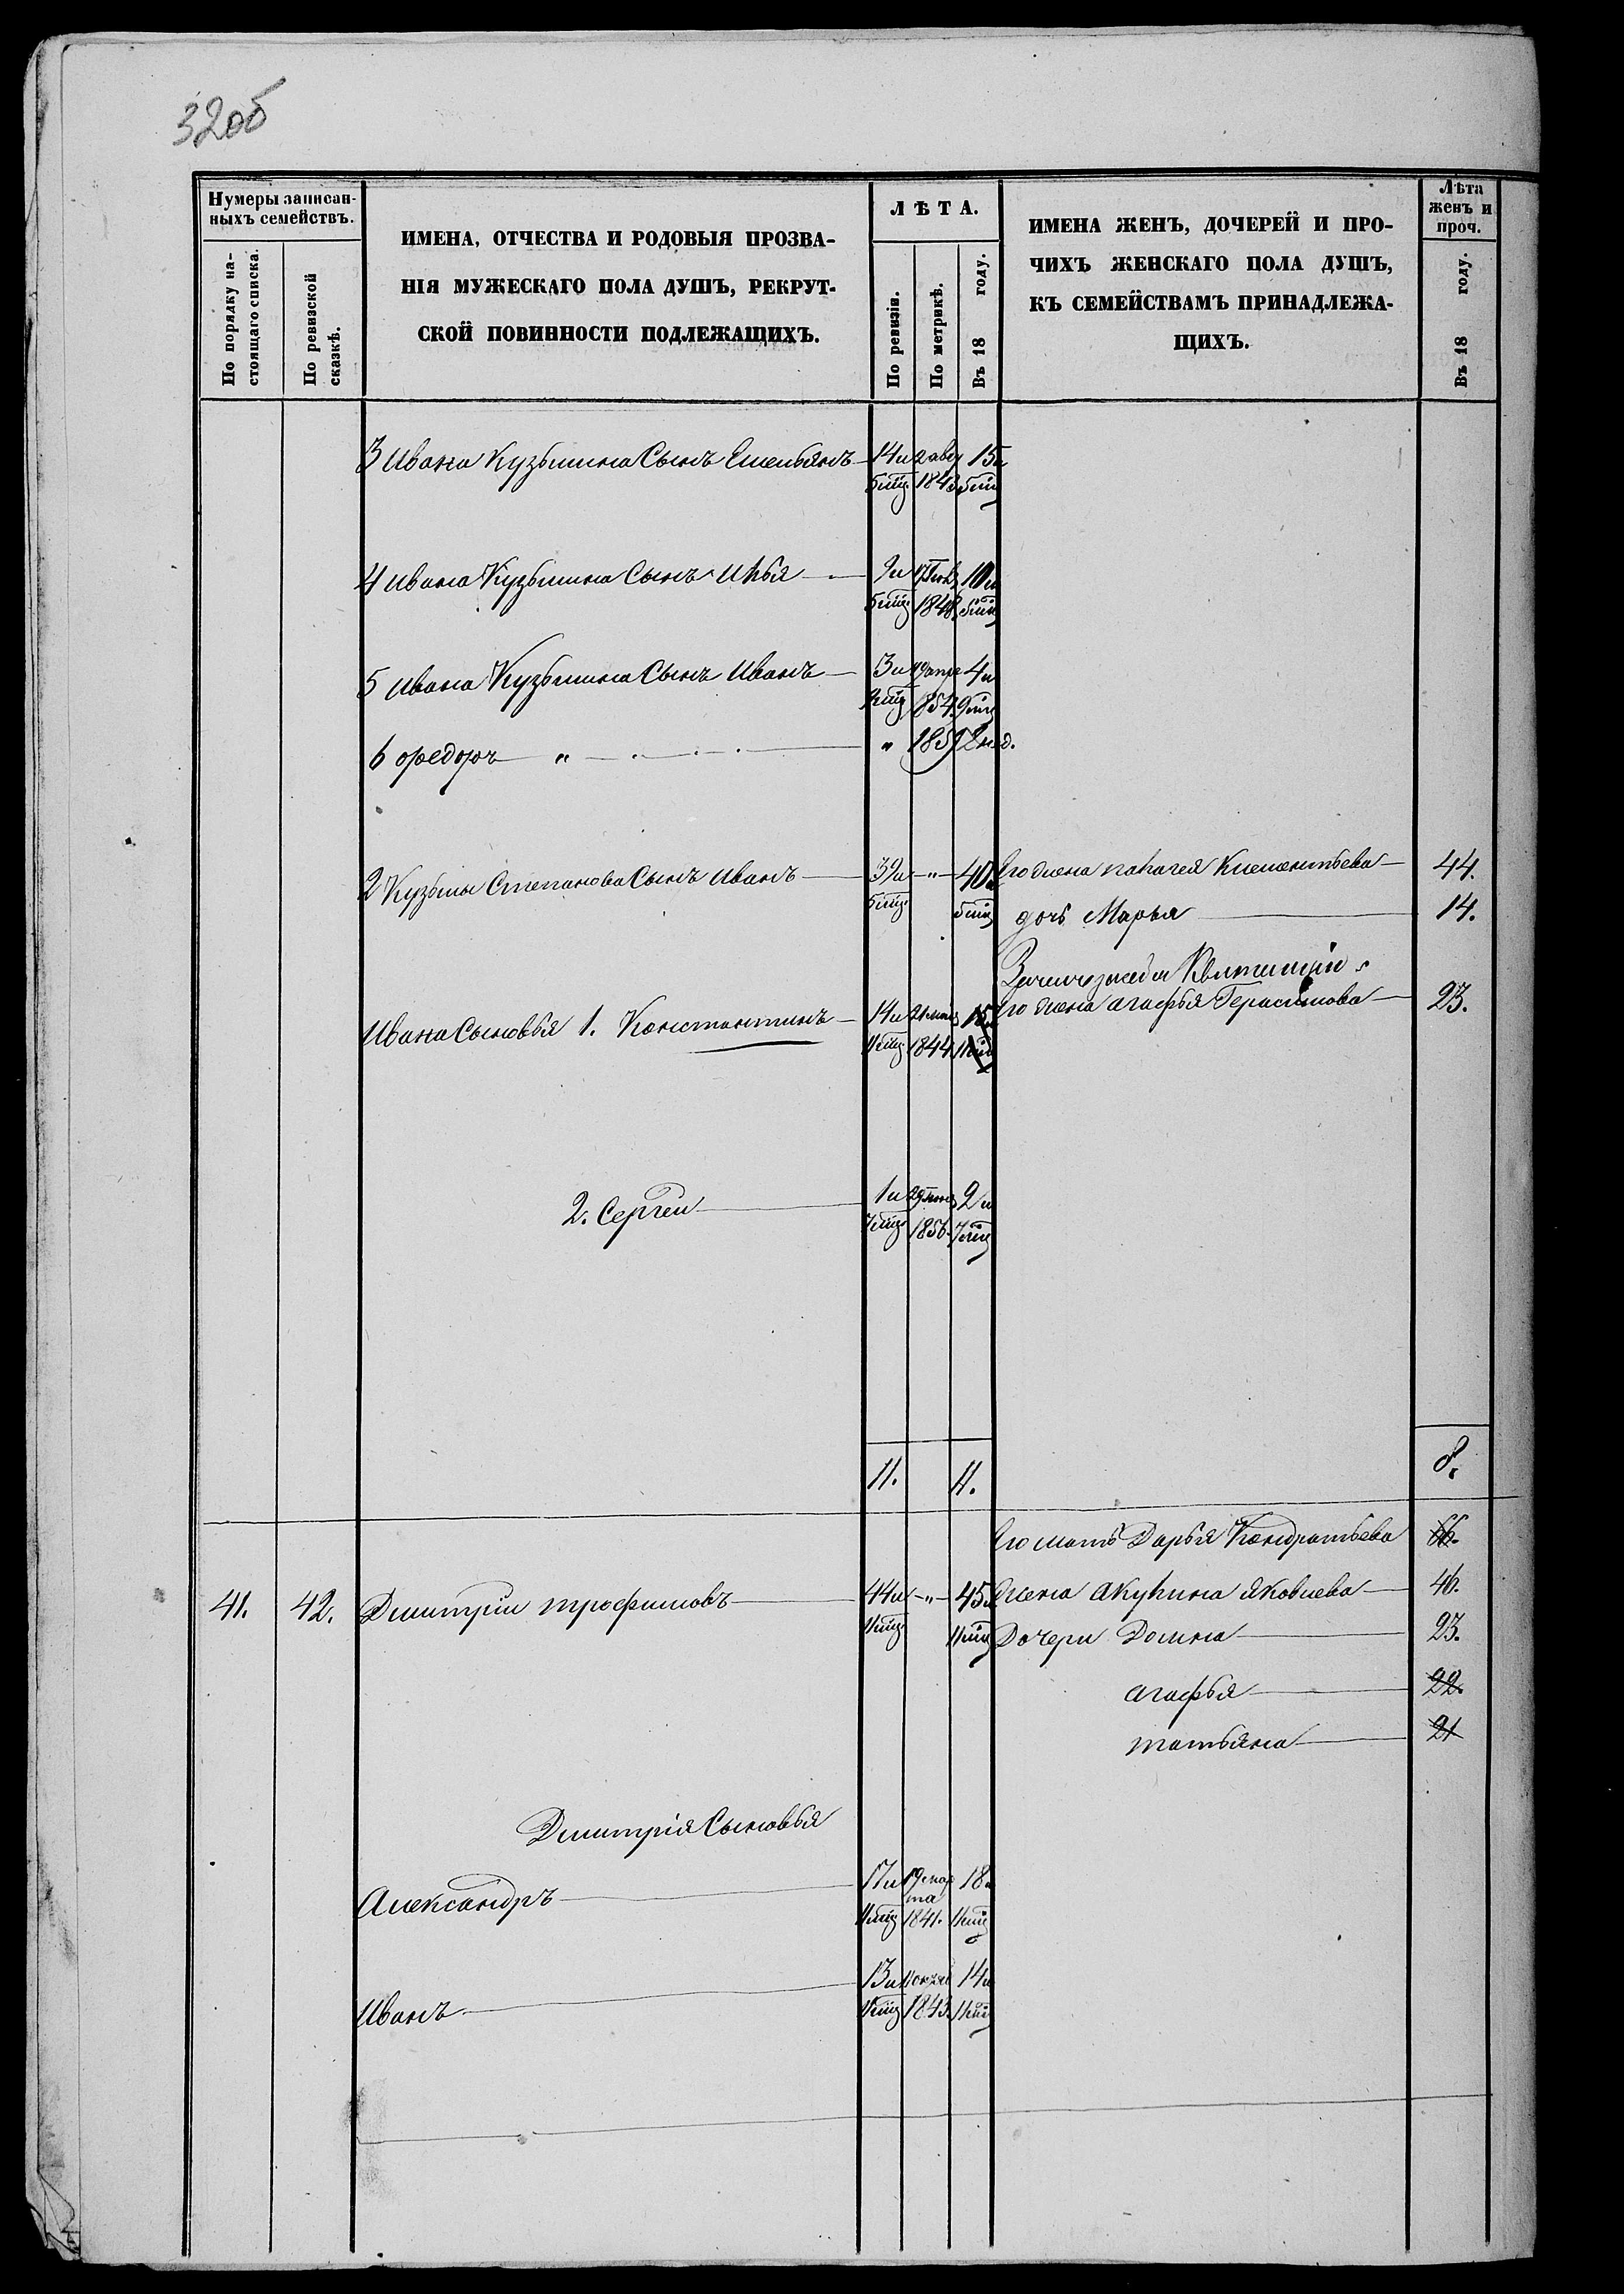 32об
Нумеры записан-
ныхъ семействъ.
По порядку на-
стоящаго списка.
По ревизской
сказкѣ.
ИМЕНА, ОТЧЕСТВА И РОДОВЫЯ ПРОЗВА-
НІЯ МУЖЕСКАГО ПОЛА ДУШЪ, РЕКРУТ-
СКОЙ ПОВИННОСТИ ПОДЛЕЖАЩИХЪ.
ЛѢТА.
По ревизіи.
По метрикѣ.
Въ 18 году.
ИМЕНА ЖЕНЪ, ДОЧЕРЕЙ И ПРО-
ЧИХЪ ЖЕНСКАГО ПОЛА ДУШЪ,
КЪ СЕМЕЙСТВАМЪ ПРИНАДЛЕЖА-
ЩИХЪ.
Лѣта
женъ и
проч.
Въ 18 году.
3 Ивана Кузьмина Сынъ Емельянъ 14 и 2 авгу 15 и
5 мц 1843 5 мц
4 Ивана Кузьмина Сынъ Илья 9 и 10 и
5 мц 1848 5 мц
5 Ивана Кузьмина Сынъ Иванъ 3 и 19 апре 4 и
9 мц 1854 9 мц
6 Федоръ " " 1857 2 нед.
2 Кузьмы Степанова Сынъ Иванъ 39 и " 40 и Его жена Палагея Клементьева 44.
5 мц 5 мц дочь Марья 14.
Его жена Агафья Герасимова 23.
Ивана Сыновья 1. Константинъ 14 и 21 мая 15 и
11 мц 1844 11 мц
2. Сергей 1 и 2 и
7 мц 1856 7 мц
11. 11. 8.
Его мать Дарья Кондратьева 66.
41. 42. Дмитрій Трофимовъ 44 и " 45 и Жена Акулина Яковлева 46.
11 мц 11 мц Дочери Домна 23.
Агафья 22.
Татьяна 21
Дмитрія Сыновья
Александръ 17 и 19 мар 18 и
та
11 мц 1841. 11 мц
Иванъ 13 и 14 и
11 мц 1843. 11 мц